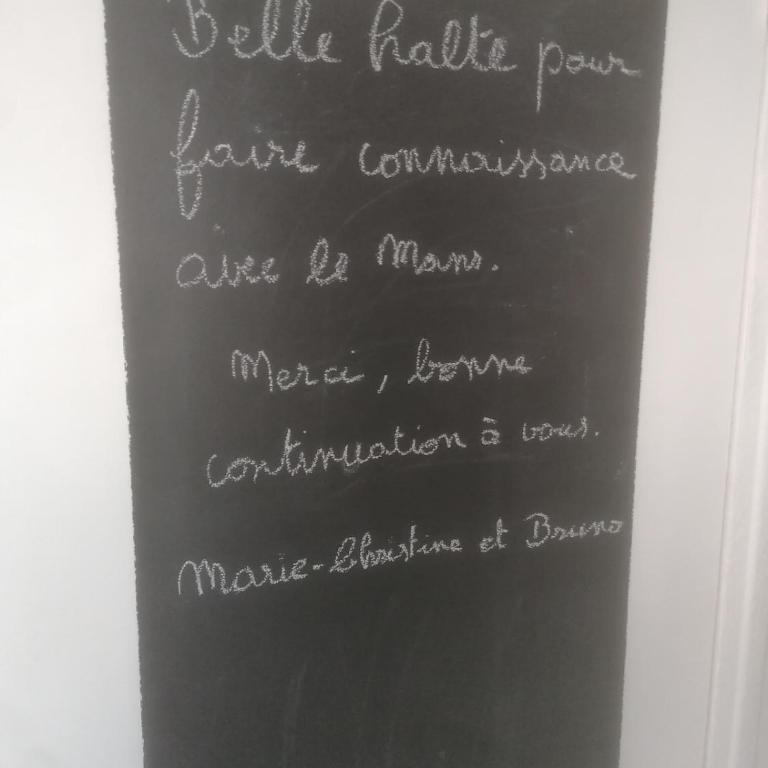 Belle halte pour
faire connaissance
avec le Mans.
Merci, bonne
continuation à vous.
Marie-Christine et Bruno